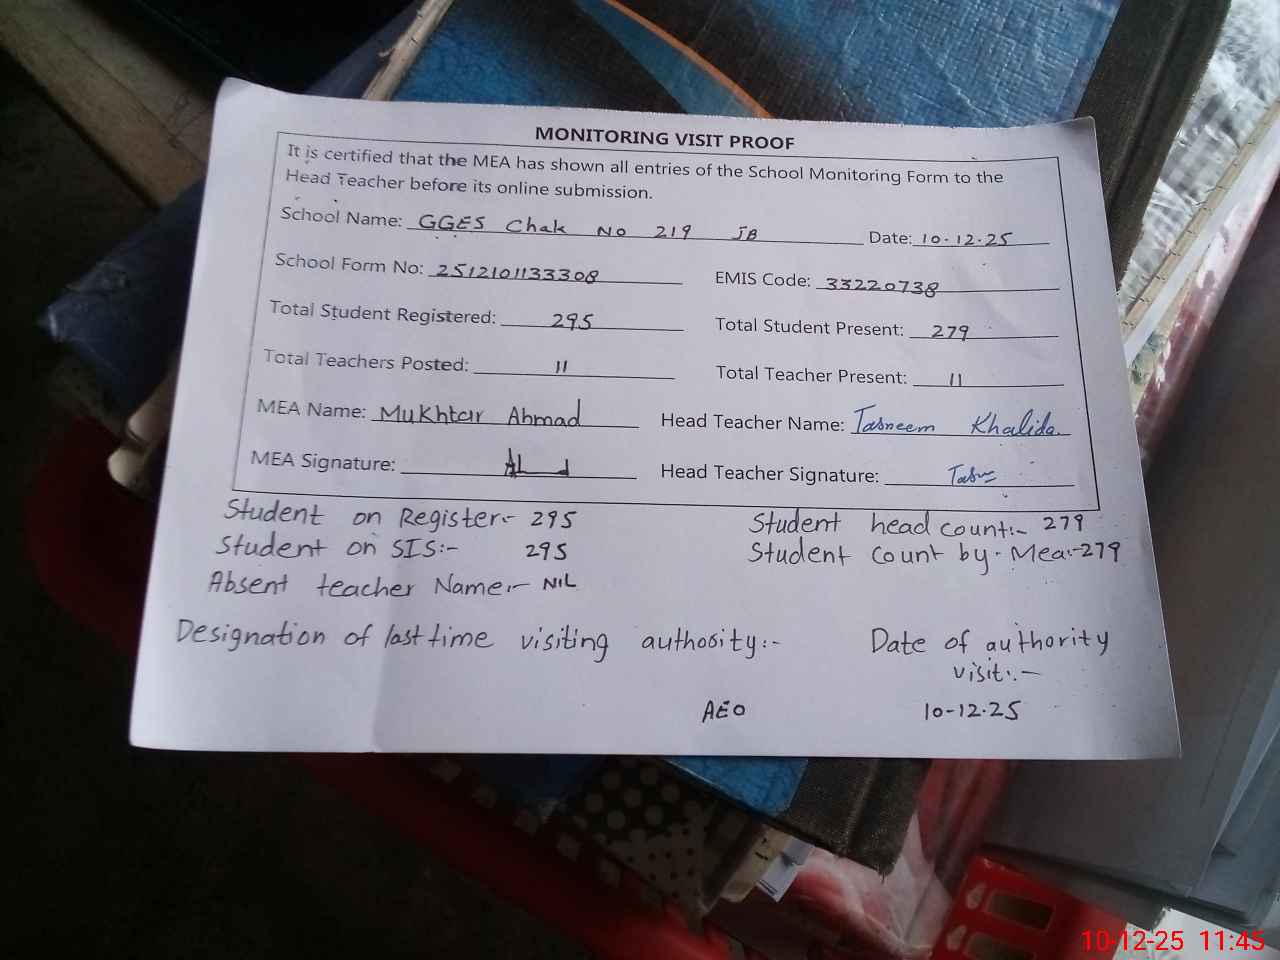 MONITORING VISIT PROOF
It is certified that the MEA has shown all entries of the School Monitoring Form to the
Head Teacher before its online submission.
School Name: GGES Chak No 219 JB Date: 10.12.25
School Form No: 2512101133308 EMIS Code: 33220738
Total Student Registered: 295 Total Student Present: 279
Total Teachers Posted: 11 Total Teacher Present: 11
MEA Name: Mukhtar Ahmad Head Teacher Name: Tasneem Khalida
MEA Signature: Head Teacher Signature:
Student on Register:- 295 Student head count:- 279
Student on SIS:- 295 Student Count by Mea:-279
Absent teacher Name:- NIL
Designation of last time visiting authority:- Date of authority
visit:-
AEO 10-12.25
10-12-25 11:45